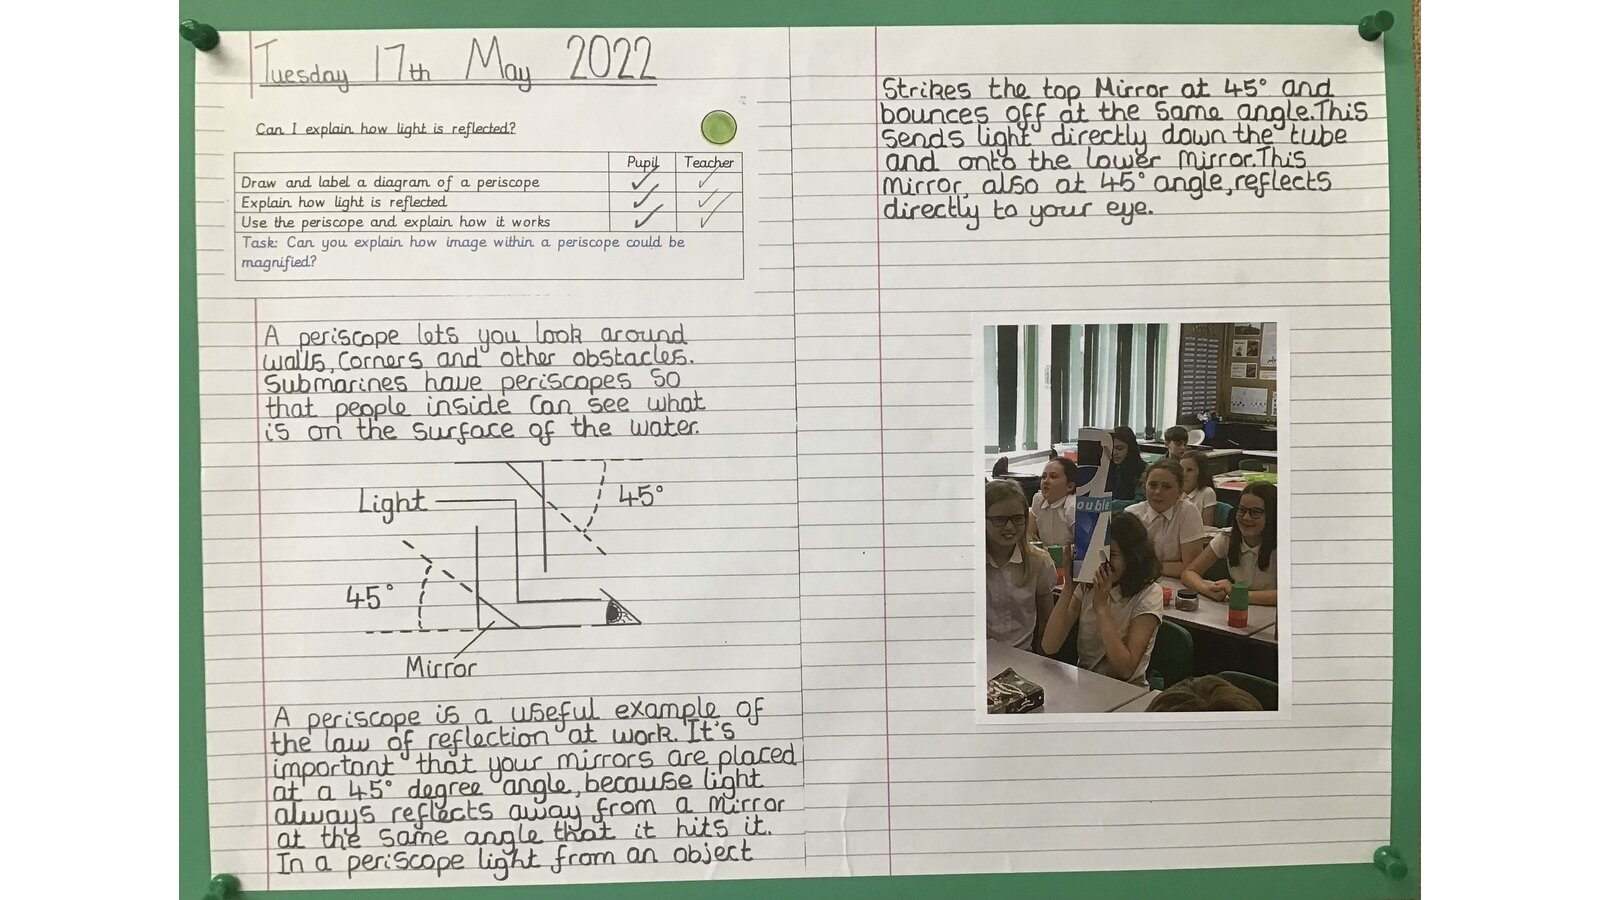 Tuesday 17th May 2022
Can I explain how light is reflected?
Pupil Teacher
Draw and label a diagram of a periscope
Explain how light is reflected
Use the periscope and explain how it works
Task: Can you explain how image within a periscope could be
magnified?
A periscope lets you look around
walls, corners and other obstacles.
Submarines have periscopes so
that people inside can see what
is on the surface of the water.
Light
45°
45°
Mirror
A periscope is a useful example of
the law of reflection at work. It's
important that your mirrors are placed
at a 45° degree angle, because light
always reflects away from a mirror
at the same angle that it hits it.
In a periscope light from an object
Strikes the top Mirror at 45° and
bounces off at the same angle. This
sends light directly down the tube
and onto the lower mirror. This
mirror, also at 45° angle, reflects
directly to your eye.
ouble